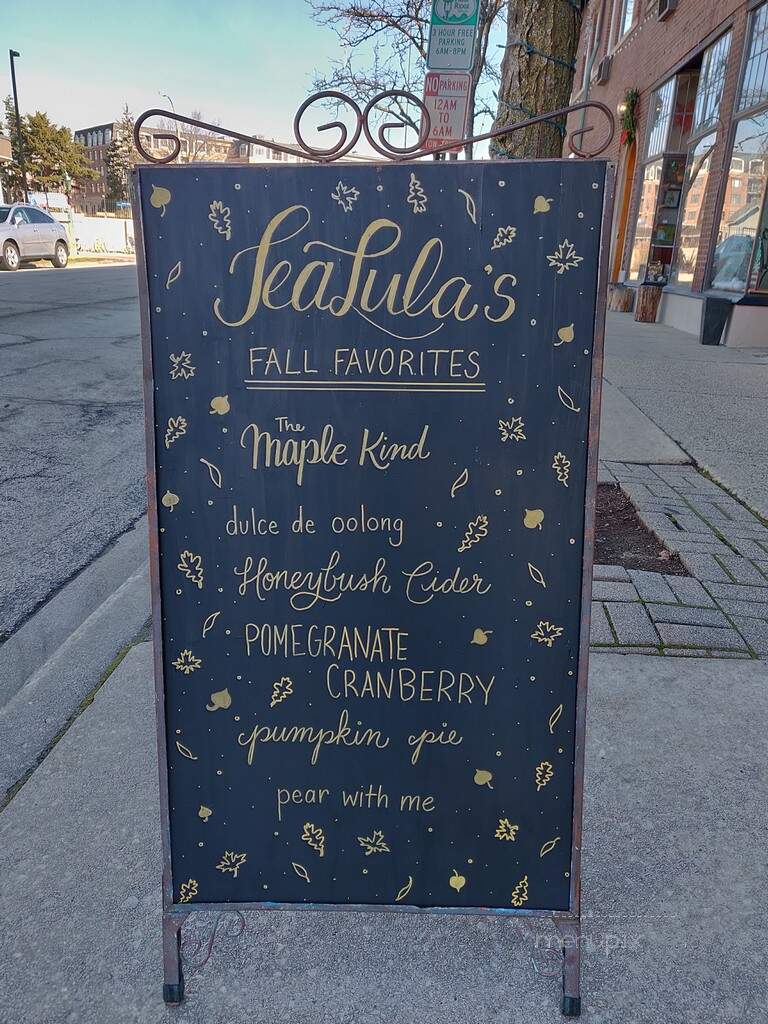 Ridge
3 HOUR FREE
PARKING
6AM-8PM
NO PARKING
12AM
TO
6AM
TeaLula's
FALL FAVORITES
The
Maple Kind
dulce de oolong
Honeybush Cider
POMEGRANATE
CRANBERRY
pumpkin pie
pear with me
menupix